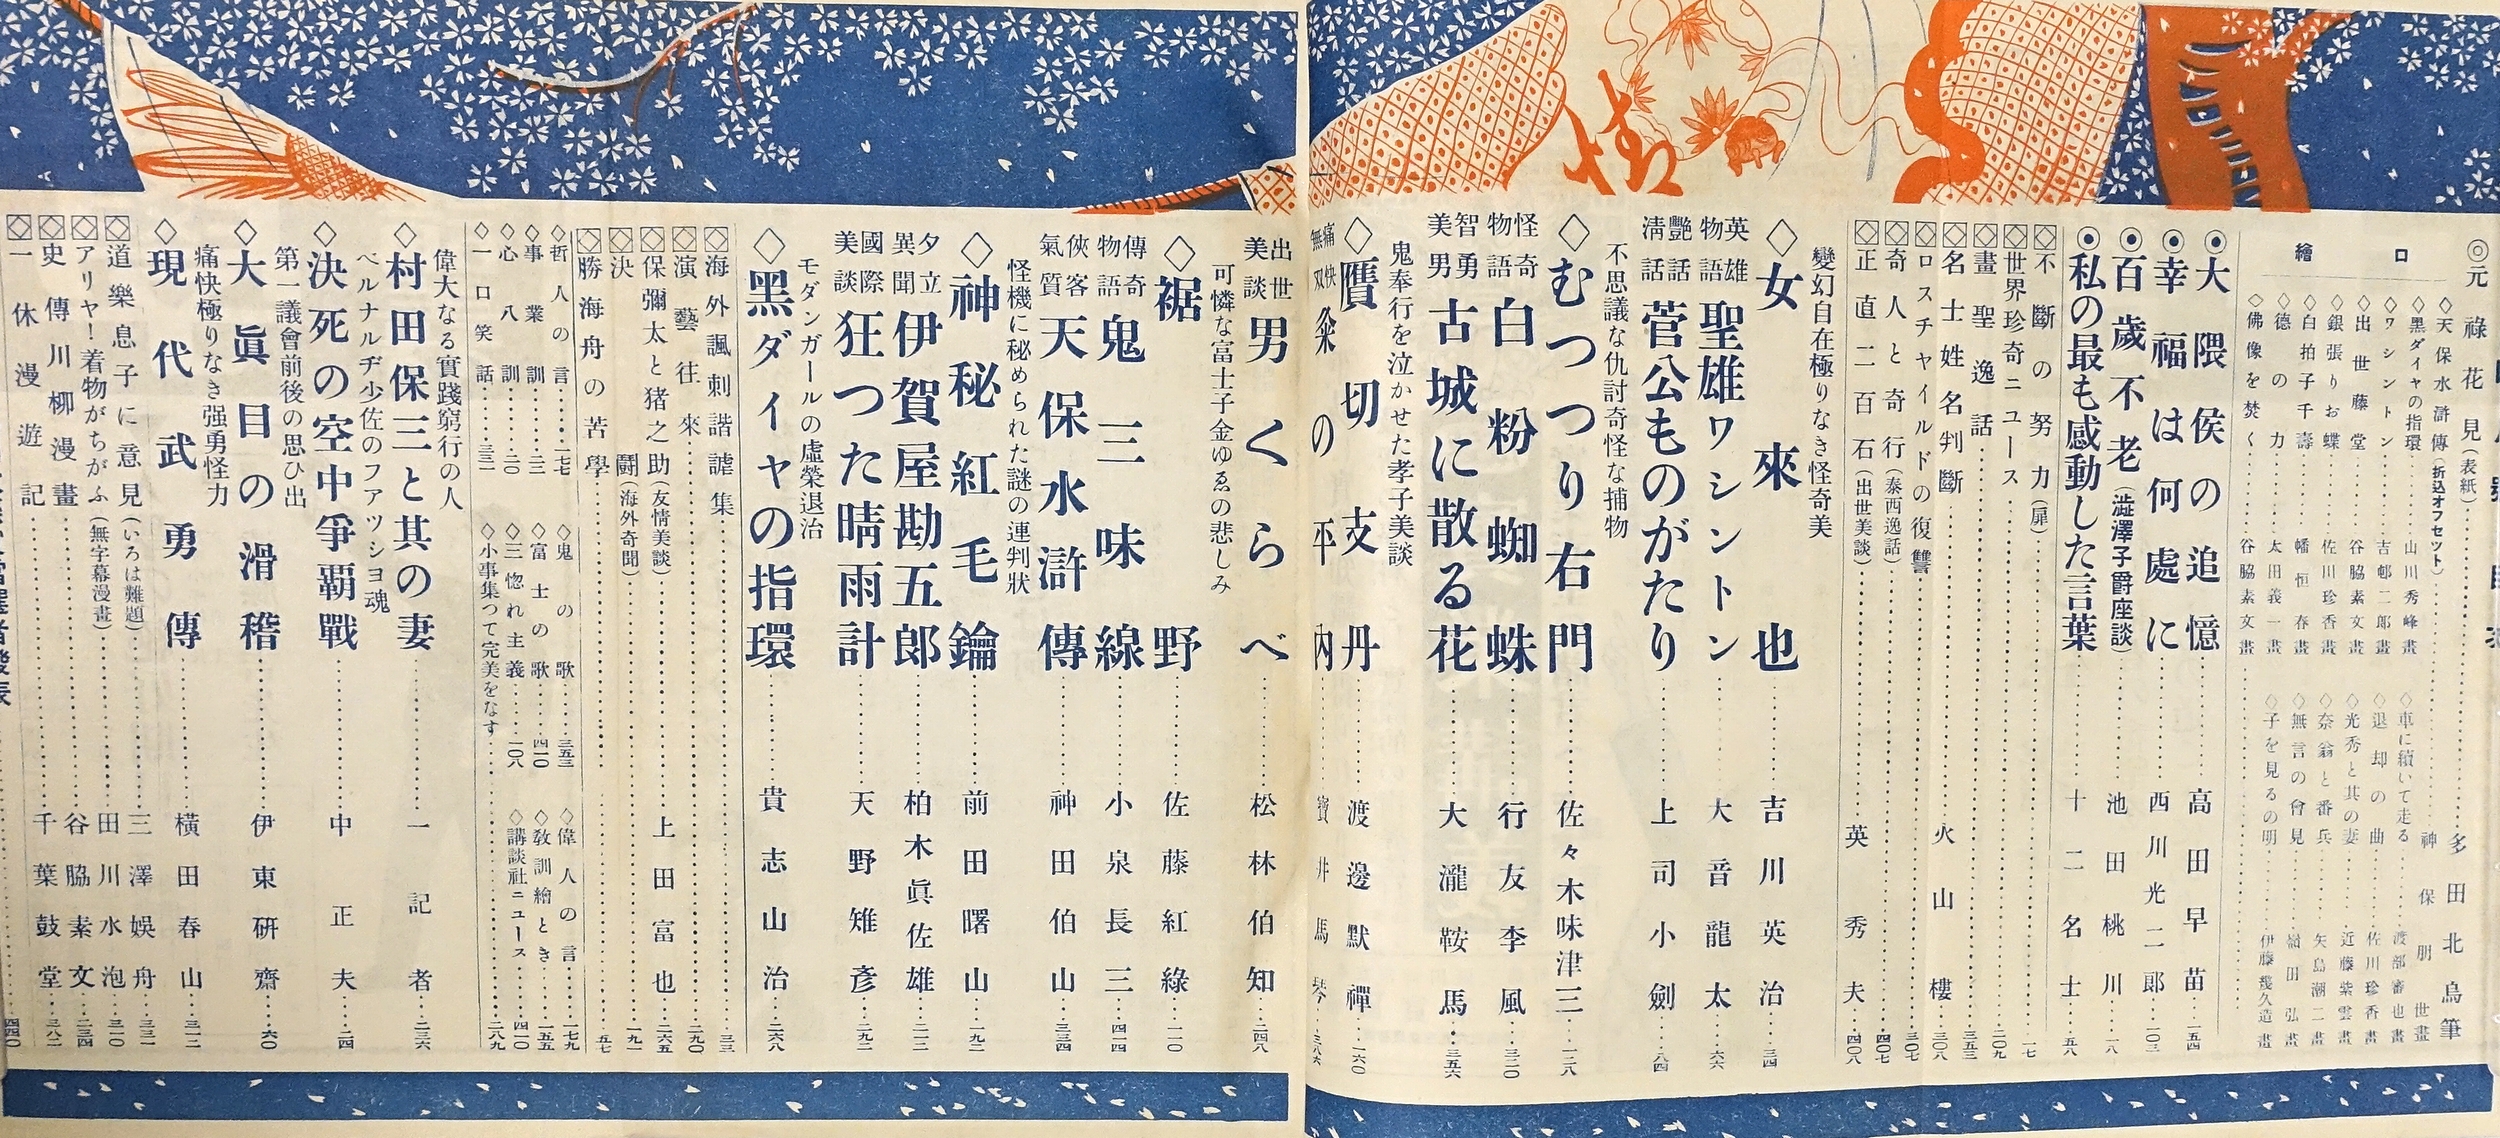 ◎元祿花見(表紙)……多田北烏筆
口繪
◇天保水滸傳(折込オフセット)……神保朋世畫
◇黑ダイヤの指環……山川秀峰畫
◇ワシントン……吉邨二郎畫
◇出世藤堂……谷脇素文畫
◇銀張りお蝶……佐川珍香畫
◇白拍子千壽……幡恒春畫
◇德の力……太田義一畫
◇佛像を焚く……谷脇素文畫
◇車に續いて走る……渡部審也畫
◇退却の曲……佐川珍香畫
◇光秀と其の妻……近藤紫雲畫
◇奈翁と番兵……矢島潮二畫
◇無言の會見……嶺田弘畫
◇子を見るの明……伊藤幾久造畫
◎大隈侯の追憶……高田早苗…一五四
◎幸福は何處に……西川光二郎…一〇三
◎百歲不老(澁澤子爵座談)……池田桃川…一八
◎私の最も感動した言葉……十二名士…五八
不斷の努力(扉)……一七
世界珍奇ニュース……二〇九
畫聖逸話……三五三
名士姓名判斷……火山樓…三〇八
ロスチャイルドの復讐……三〇七
奇人と奇行(泰西逸話)……四〇七
正直二百石(出世美談)……英秀夫…四〇八
變幻自在極りなき怪奇美
◇女來也……吉川英治…三四
英雄物語 聖雄ワシントン……大音龍太…六六
艷話淸話 菅公ものがたり……上司小劍…八四
不思議な仇討奇怪な捕物
◇むつつり右門……佐々木味津三…一二八
怪奇物語 白粉蜘蛛……行友李風…三二〇
智勇美男 古城に散る花……大瀧鞍馬…三五六
鬼奉行を泣かせた孝子美談
◇贋切支丹……渡邊默禪…一六〇
痛快無双 粂の平內……寶井馬琴…三八六
出世美談 男くらべ……松林伯知…二四八
可憐な富士子金ゆゑの悲しみ
◇裾野……佐藤紅綠…一一〇
傳奇物語 鬼三味線……小泉長三…四一四
俠客氣質 天保水滸傳……神田伯山…三三四
怪機に秘められた謎の連判狀
◇神秘紅毛鑰……前田曙山…一九二
夕立異聞 伊賀屋勘五郎……柏木眞佐雄…二一二
國際美談 狂つた晴雨計……天野雉彥…二九二
モダンガールの虛榮退治
◇黑ダイヤの指環……貴志山治…二六八
海外諷刺諧謔集……三三
演藝往來……二九〇
保彌太と猪之助(友情美談)……上田富也…二六五
決鬪(海外奇聞)……一九一
勝海舟の苦學……五七
◇哲人の言……一七七
◇事業訓……三二
◇心八訓……二〇
◇一口笑話……三三一
◇鬼の歌……三五三
◇富士の歌……四一〇
◇三惚れ主義……一〇八
◇小事集つて完美をなす……二八九
◇偉人の言……一七九
◇敎訓繪とき……一五五
◇講談社ニュース……四一〇
偉大なる實踐窮行の人
◇村田保三と其の妻……一記者…二三六
ベルナルヂ少佐のファッショ魂
◇決死の空中爭覇戰……中正夫…二四
第一議會前後の思ひ出
◇大眞目の滑稽……伊東硏齋…六〇
痛快極りなき强勇怪力
◇現代武勇傳……橫田春山…三一二
道樂息子に意見(いろは難題)……三澤娛舟…三三一
アリヤ!着物がちがふ(無字幕漫畫)……田川水泡…三一〇
史傳川柳漫畫……谷脇素文…二三四
一休漫遊記……千葉鼓堂…三八二